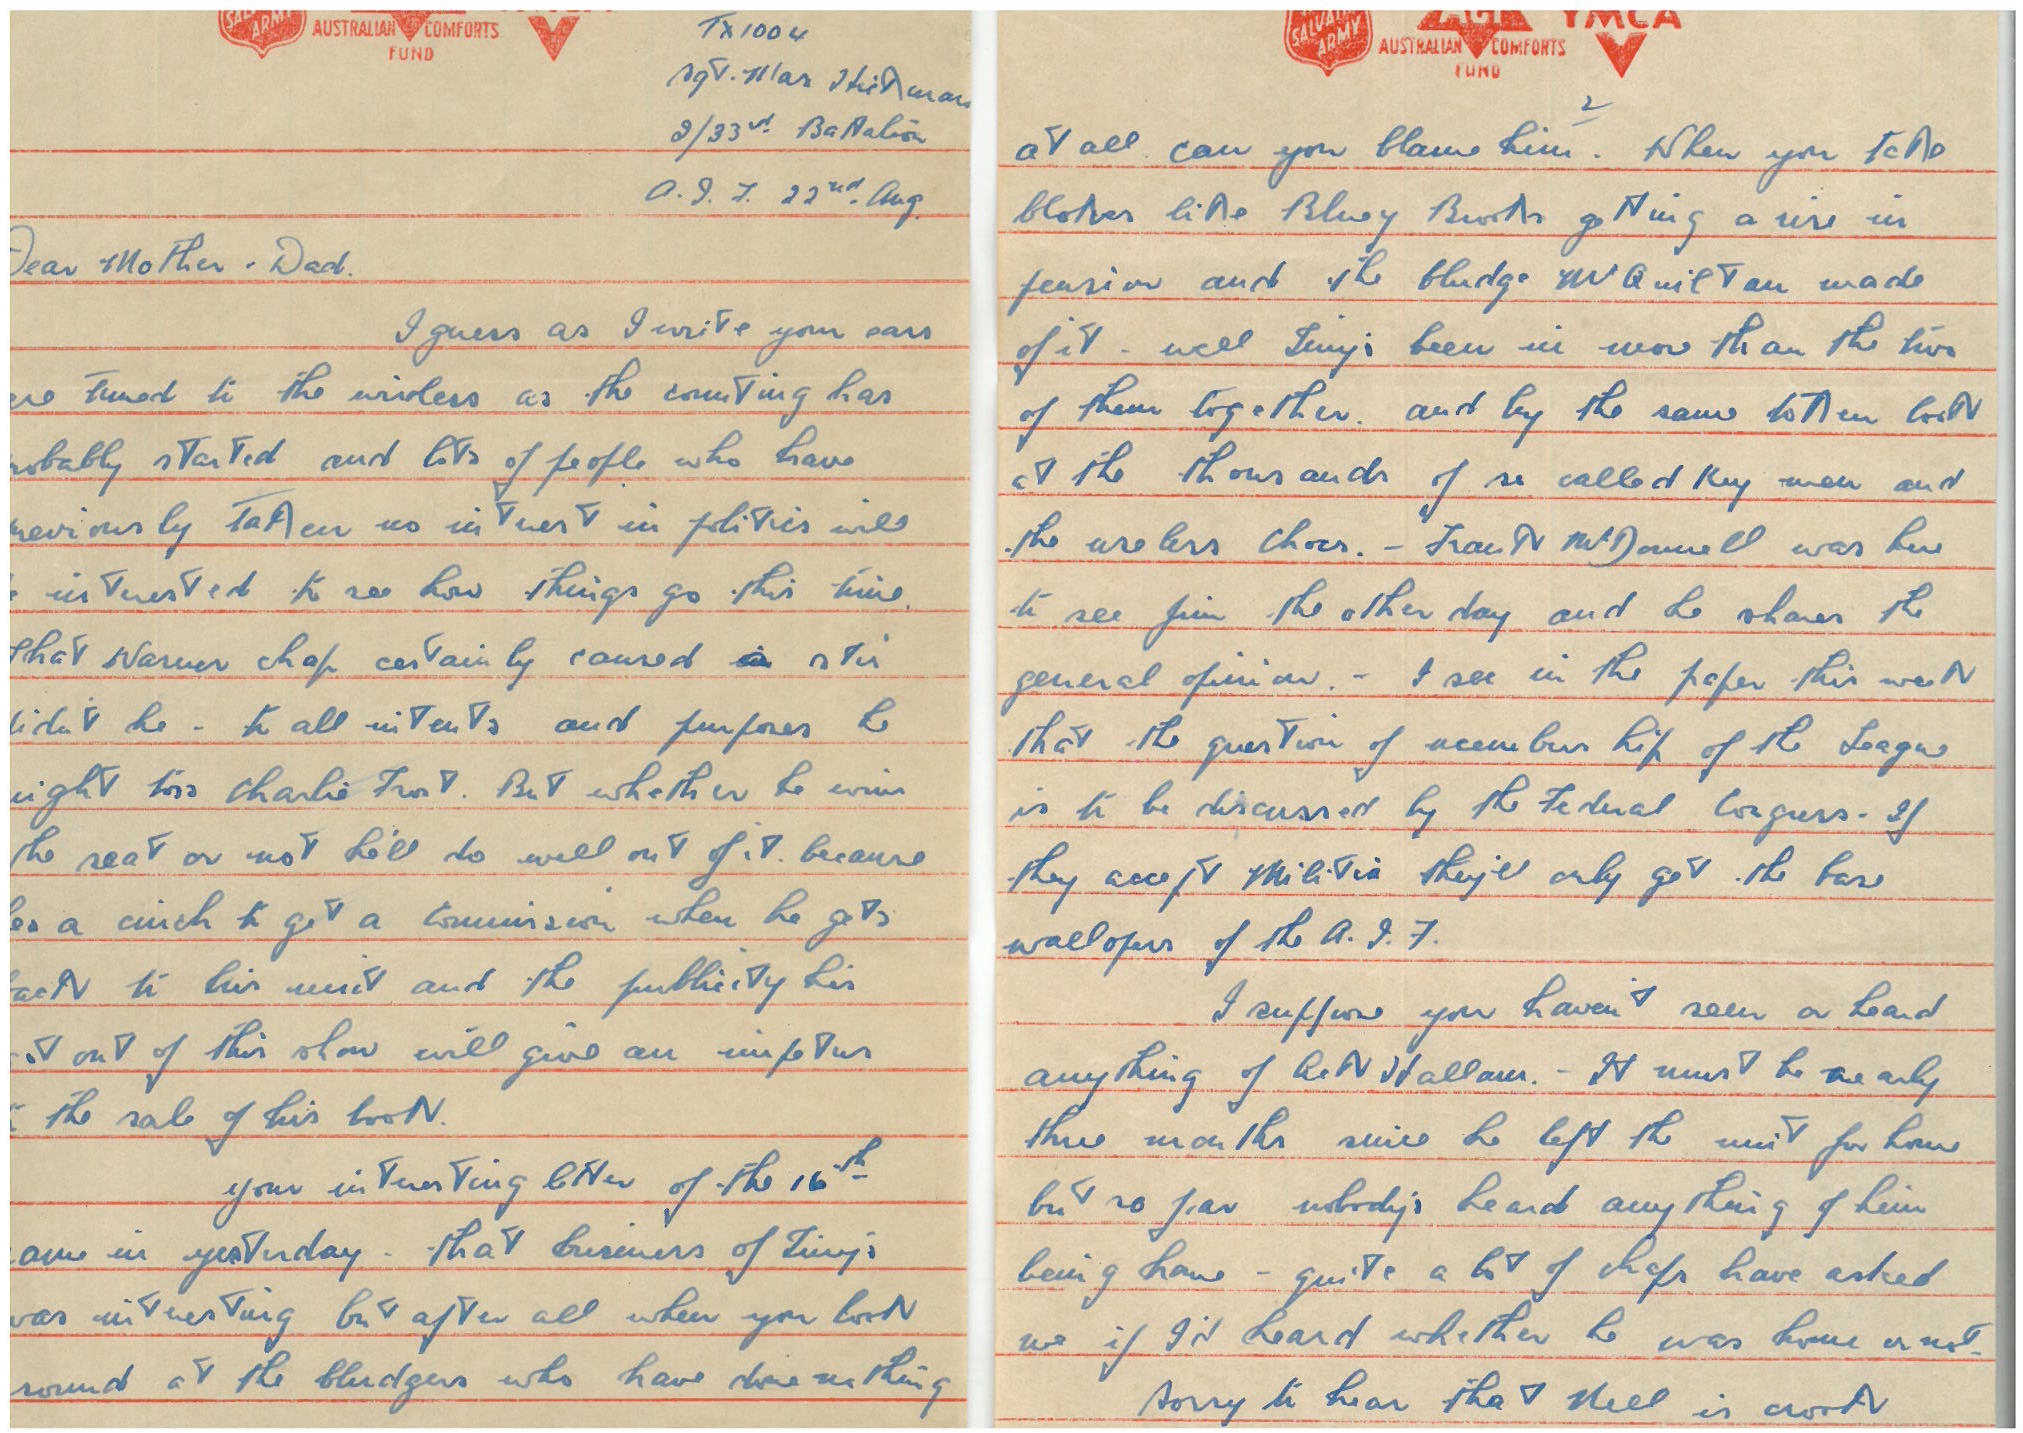 SALVATION ARMY
AUSTRALIAN COMFORTS
FUND
TX1004
Sgt. Max Hickman
2/33rd. Battalion
A.I.F. 22nd. Aug.
Dear Mother - Dad.
I guess as I write your ears
are tuned to the wireless as the counting has
probably started and lots of people who have
previously taken no interest in politics will
be interested to see how things go this time.
That Warner chap certainly caused a stir
didn't he - to all intents and purposes he
might toss Charlie Frost. But whether he wins
the seat or not he'll do well out of it. because
he's a cinch to get a Commission when he gets
back to his unit and the publicity his
got out of this show will give an impetus
to the sale of his book.
your interesting letter of the 16th
came in yesterday - that business of Tiny's
was interesting but after all when you look
around at the bludgers who have done nothing
SALVATION ARMY
ACF
YMCA
AUSTRALIAN COMFORTS
FUND
2
at all can you blame him. When you take
blokes like Bluey Brooks getting a rise in
pension and the bludge McQuilton made
of it - well Tiny's been in more than the two
of them together. and by the same token look
at the thousands of so called Key men and
the useless Chocs. - Frank McDonnell was here
to see Jim the other day and he shares the
general opinion. - I see in the paper this week
that the question of membership of the League
is to be discussed by the Federal Congress. If
they accept Militia they'll only get the base
wallopers of the A.I.F.
I suppose you haven't seen or heard
anything of Hallam. - It must be nearly
three months since he left the unit for home
but so far nobody's heard anything of him
being home - quite a lot of chaps have asked
me if I'd heard whether he was home or not.
Sorry to hear that Nell is crook